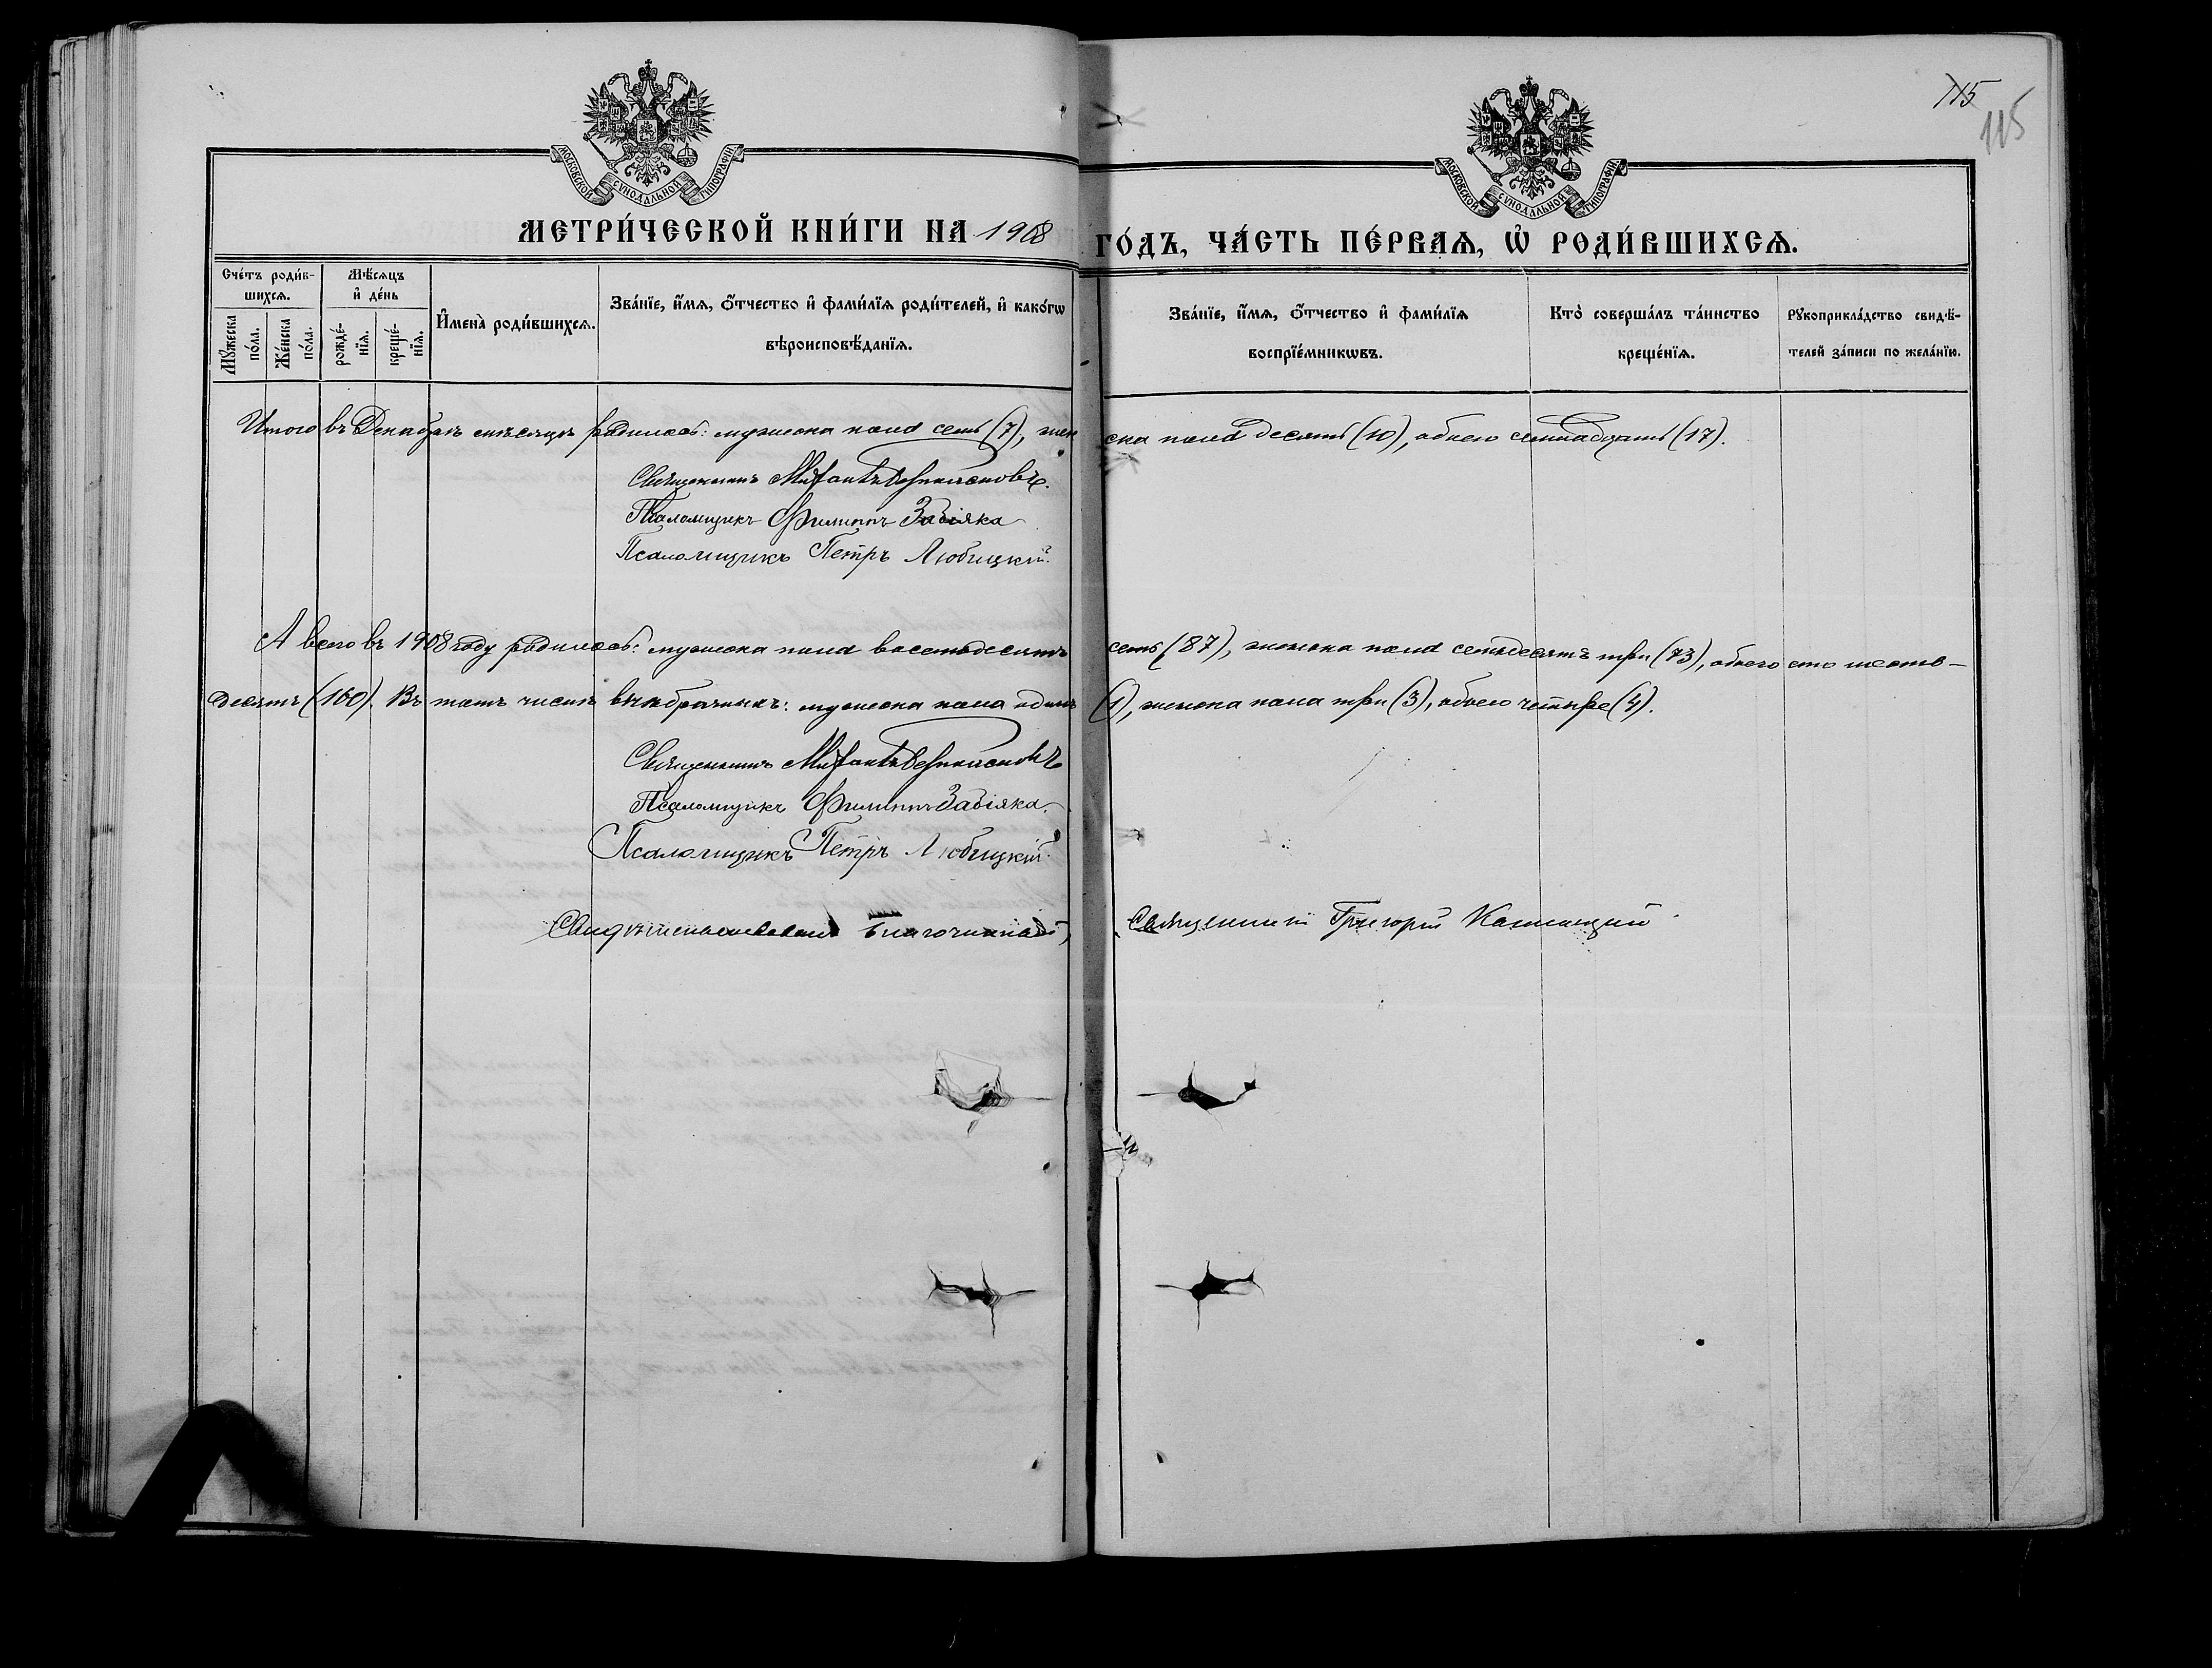 115
115
МОСКОВСКОЙ СѴНОДАЛЬНОЙ ТИПОГРАФІИ
МОСКОВСКОЙ СѴНОДАЛЬНОЙ ТИПОГРАФІИ
МЕТРИ́ЧЕСКОЙ КНИ́ГИ НА 1908 ГО́ДЪ, ЧА́СТЬ ПЕ́РВАѦ, Ѡ҆ РОДИ́ВШИХСѦ.
Сче́тъ роди́в-
шихсѧ.
Мꙋ́жеска по́ла.
Же́нска по́ла.
Мѣ́сѧцъ
и҆ де́нь
рожде́-
нїѧ.
креще́-
нїѧ.
И҆мена̀ роди́вшихсѧ.
Зва́нїе, и҆́мѧ, ѻ҆́тчество и҆ фами́лїѧ роди́телей, и҆ како́гѡ
вѣроисповѣ́данїѧ.
Зва́нїе, и҆́мѧ, ѻ҆́тчество и҆ фами́лїѧ
воспрїе́мникѡвъ.
Кто̀ соверша́лъ та́инство
креще́нїѧ.
Рꙋкоприкла́дство свидѣ́-
телей за́писи по жела́нїю.
Итого въ Декабрѣ мѣсяцѣ родилось: мужеска пола семь (7), женска пола десять (10), обоего семнадцать (17).
Священникъ
Псаломщикъ Филиппъ Забіяка
Псаломщикъ Петръ Любицкій.
А всего въ 1908 году родилось: мужеска пола восемьдесятъ семь (87), женска пола семьдесятъ три (73), обоего сто шесть-
десятъ (160). Въ томъ числѣ внѣбрачныхъ: мужеска пола одинъ (1), женска пола три (3), обоего четыре (4).
Священникъ
Псаломщикъ Филиппъ Забіяка.
Псаломщикъ Петръ Любицкій.
Свидѣтельствовалъ Благочинный, Священникъ Григорій